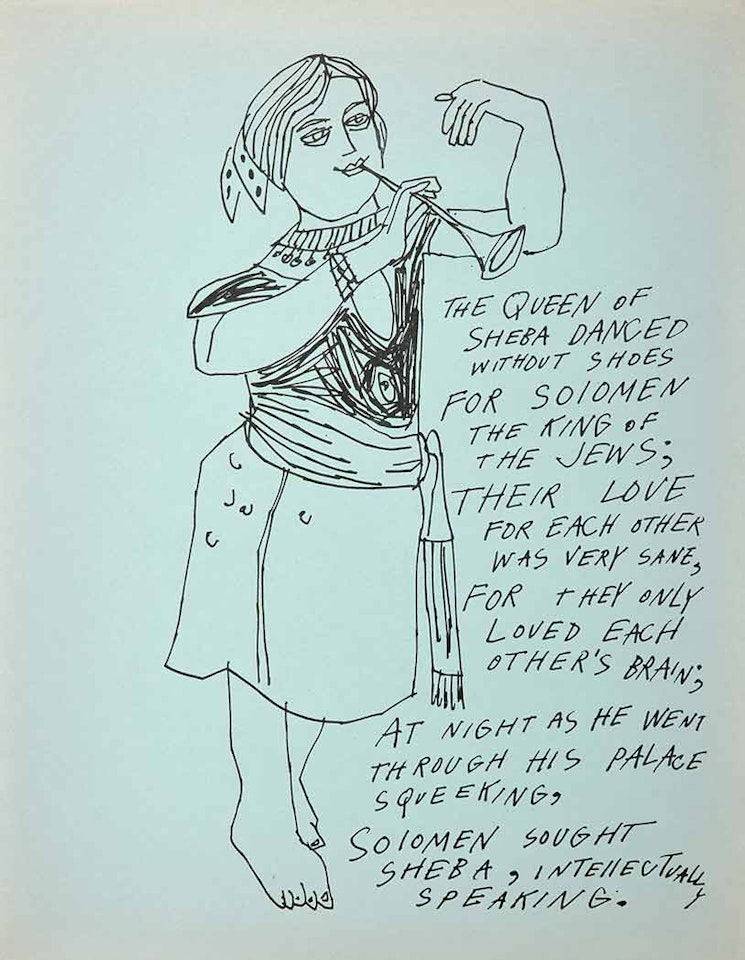 THE QUEEN OF
SHEBA DANCED
WITHOUT SHOES
FOR SOLOMEN
THE KING OF
THE JEWS;
THEIR LOVE
FOR EACH OTHER
WAS VERY SANE,
FOR THEY ONLY
LOVED EACH
OTHER'S BRAIN;
AT NIGHT AS HE WENT
THROUGH HIS PALACE
SQUEEKING,
SOLOMEN SOUGHT
SHEBA, INTELLECTUALLY
SPEAKING.